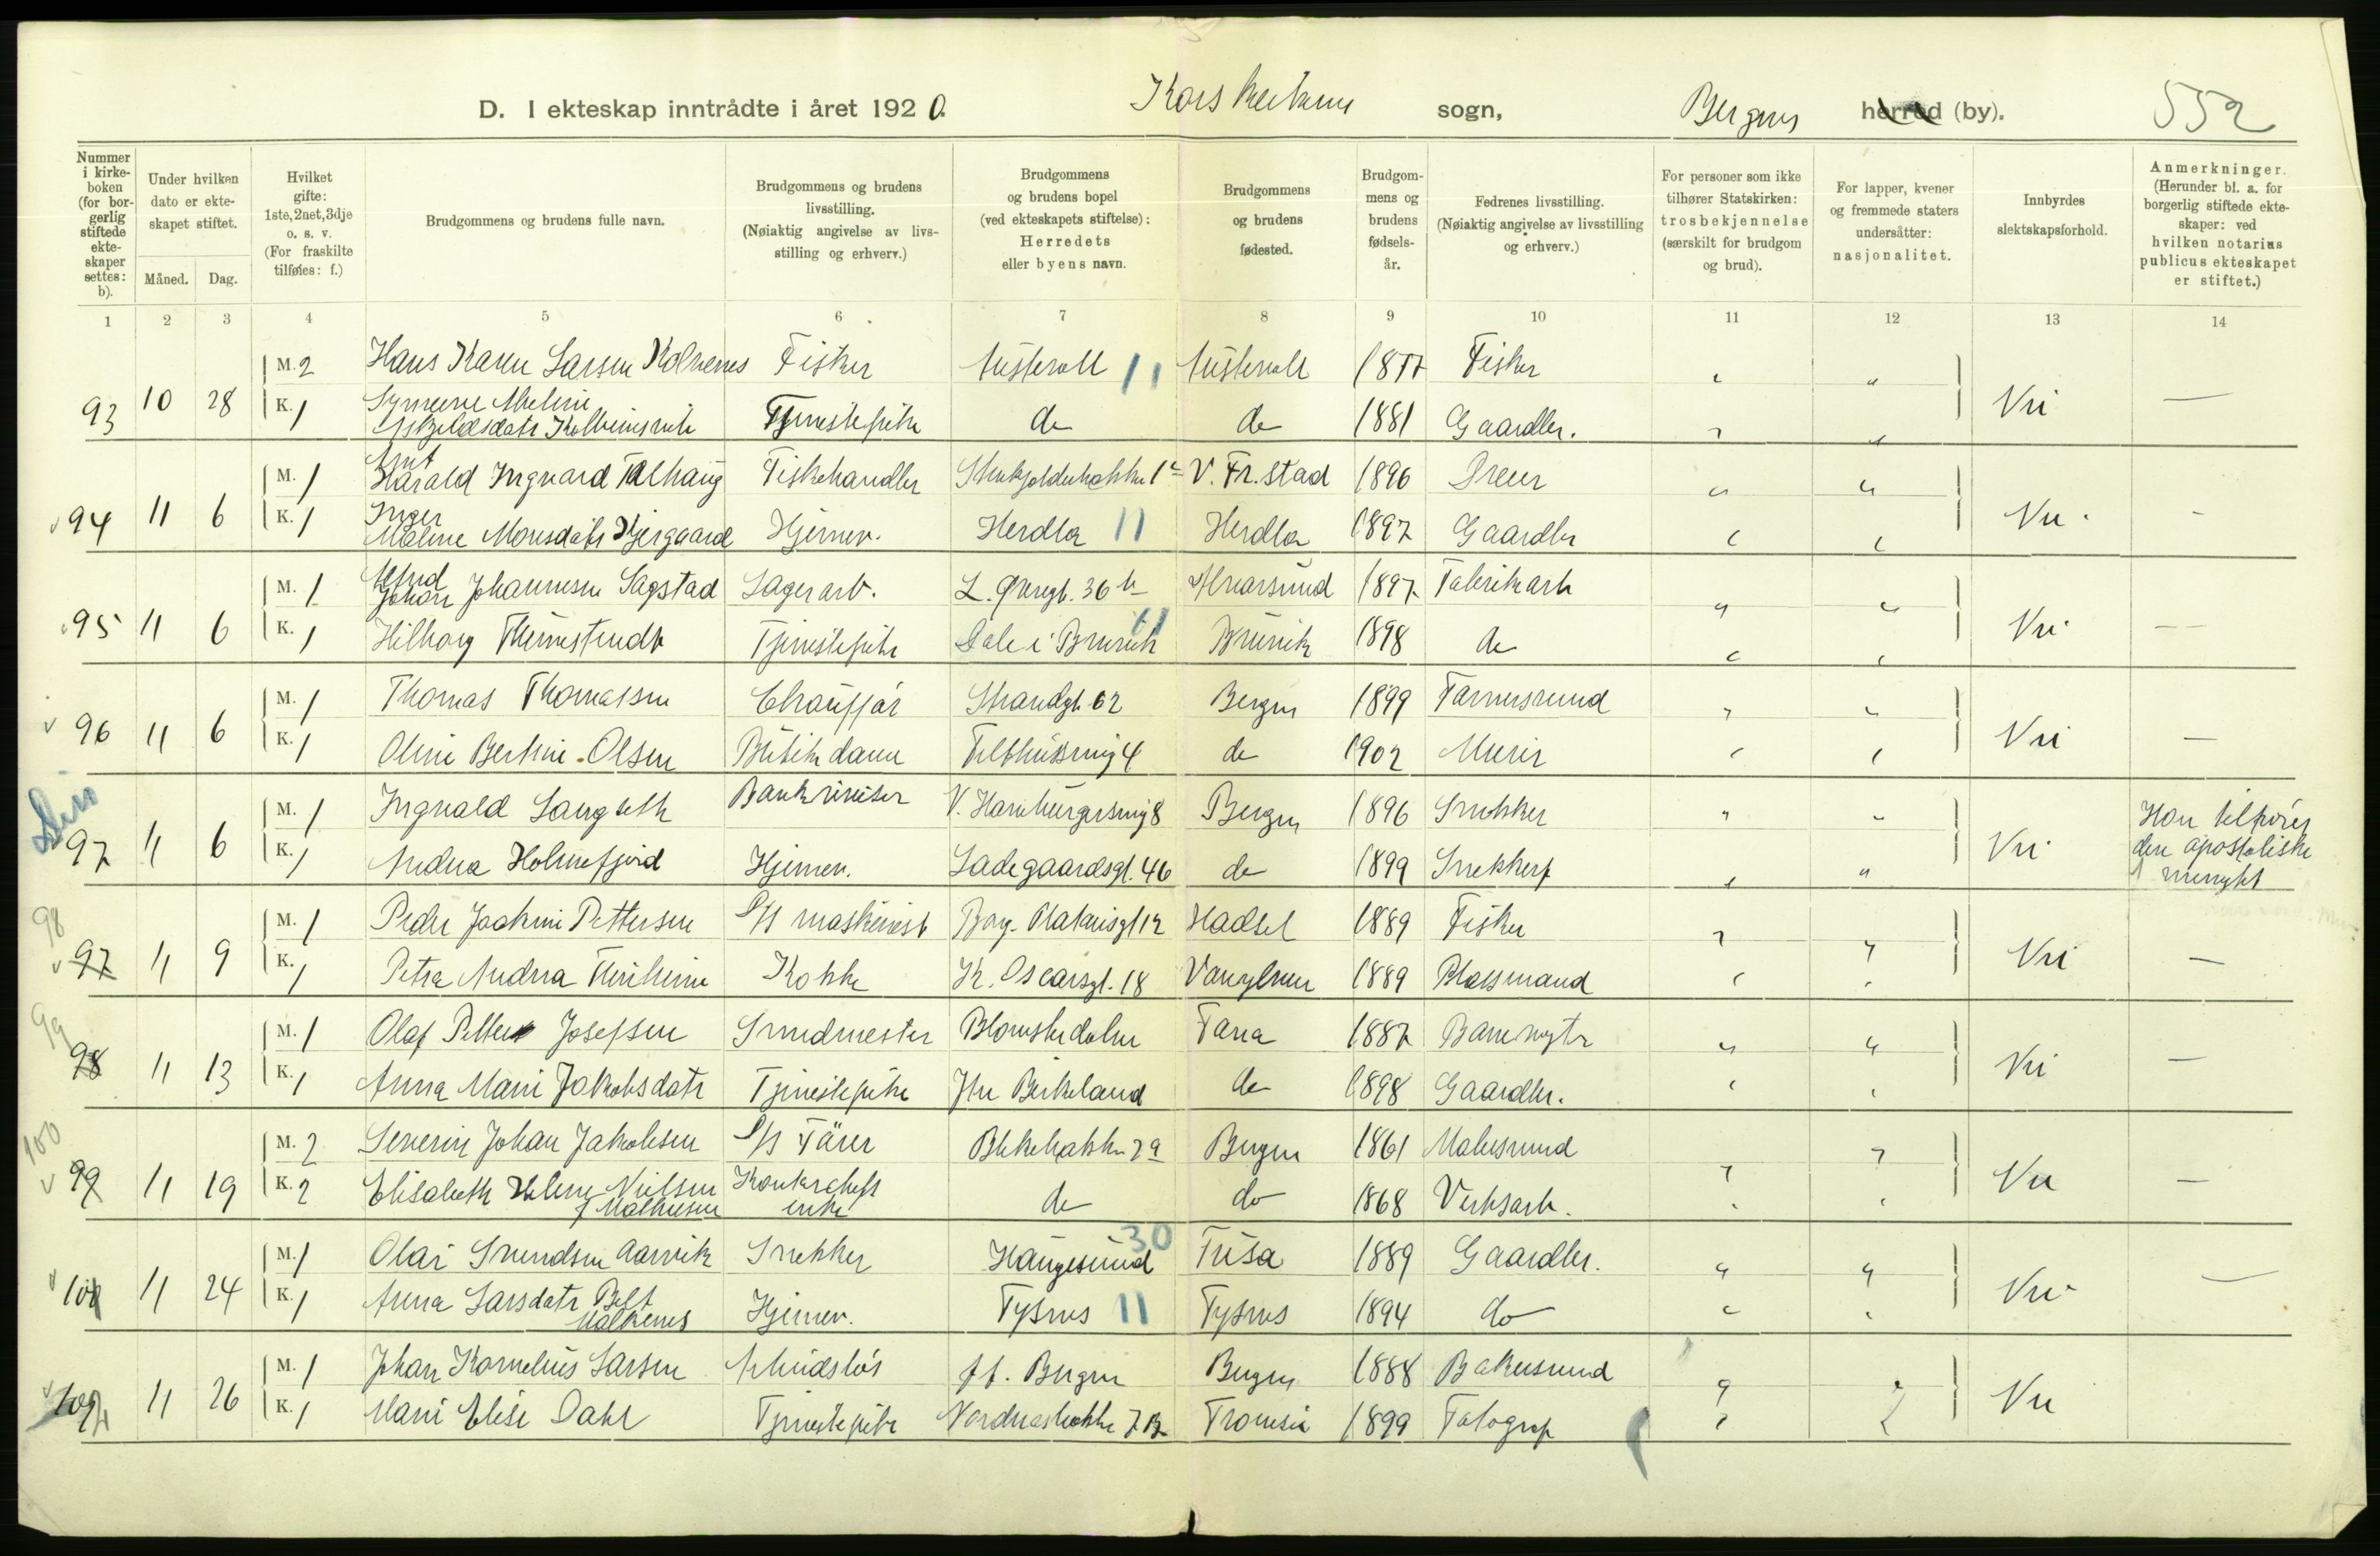 D. I ekteskap inntrådte i året 1920. Korskirkens sogn, Bergens herred (by). 552
Nummer i kirkeboken (for borgerlig stiftede ekteskaper settes: b).
Under hvilken dato er ekteskapet stiftet.
Måned. Dag.
Hvilket gifte: 1ste, 2net, 3dje o. s. v. (For fraskilte tilføies: f.)
Brudgommens og brudens fulle navn.
Brudgommens og brudens livsstilling. (Nøiaktig angivelse av livsstilling og erhverv.)
Brudgommens og brudens bopel (ved ekteskapets stiftelse): Herredets eller byens navn.
Brudgommens og brudens fødested.
Brudgommens og brudens fødselsår.
Fedrenes livsstilling. (Nøiaktig angivelse av livsstilling og erhverv.)
For personer som ikke tilhører Statskirken: trosbekjennelse (særskilt for brudgom og brud).
For lapper, kvener og fremmede staters undersåtter: nasjonalitet.
Innbyrdes slektskapsforhold.
Anmerkninger. (Herunder bl. a. for borgerlig stiftede ekteskaper: ved hvilken notarius publicus ekteskapet er stiftet.)
1 2 3 4 5 6 7 8 9 10 11 12 13 14
M. 2 Hans Larsen Kolvenes Fisker Austevoll 11 Austevoll 1877 Fisker " "
93 10 28 K. 1 Tjenestepike do do 1881 Gaardbr. " " Nei —
M. 1 Arnt Harald Ingvard Fiskehandler V. Fr.stad 1896 " "
94 11 6 K. 1 Inger Maline Monsdatr Kjergaard Hjemmev. Herdla 11 Herdla 1897 Gaardbr " " Nei -
M. 1 Johan Johannesen Sagstad Lagerarb. L. Øvregt. 36 b Alvarsund 1897 Fabrikarb " "
95 11 6 K. 1 Hilborg Tjenestepike Dale i Bruvik 11 Bruvik 1898 do " " Nei —
M. 1 Thomas Thomassen Chauffør Strandgt 62 Bergen 1899 " "
96 11 6 K. 1 Oline Bertine Olsen Butikdame 4 do 1902 Murer " " Nei —
M. 1 Ingvald Langseth V. Hamburgersmug 8 Bergen 1896 Snekker " " Hon tilhører
97 11 6 K. 1 Andrea Holmefjord Hjemmev. Ladegaardsgt. 46 do 1899 Snekkerf " " Nei den apostoliske
menighet
M. 1 Peder Joakim Pettersen S/S maskinist 12 Hadsel 1889 Fisker " "
98 97 11 9 K. 1 Petra Andrea Kokke K. Oscarsgt. 18 Vanylven 1889 Pladsmand " " Nei —
M. 1 Olaf Petter Josefsen Smedmester Blomsterdalen Fana 1887 " "
99 98 11 13 K. 1 Anna Marie Jakobsdatr Tjenestepike Ytre Birkeland do 1898 Gaardbr. " " Nei —
M. 2 Severin Johan Jakobsen S/S Fører Blekebakken 2a Bergen 1861 " "
100 99 11 19 K. 2 Elisabeth Helene Nielsen f Mathiesen enke do do 1868 Verksarb. " " Nei —
M. 1 Olai Svendsen Aarvik Snekker Haugesund 30 Fusa 1889 Gaardbr. " "
11 24 K. 1 Anna Larsdatr Hjemmev. Tysnes 11 Tysnes 1894 do " " Nei —
M. 1 Johan Kornelius Larsen Arbeidsløs ff. Bergen Bergen 1888 "
11 26 K. 1 Marie Elise Dahl Tjenestepike Nordnesbakken 7B Tromsø 1899 Fotograf " Nei